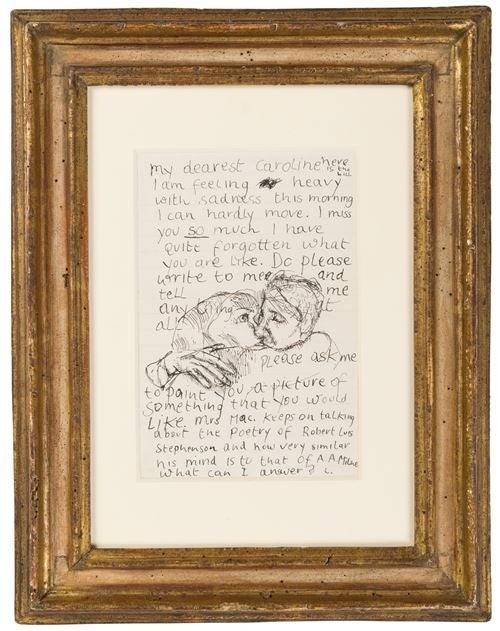 my dearest Caroline here
is the
bill
I am feeling heavy
with sadness this morning
I can hardly move. I miss
you so much I have
quitt forgotten what
you are like. Do please
write to me and
tell me
any thing at
all
please ask me
to paint you a picture of
something that you would
Like. Mrs Mac. keeps on talking
about the Poetry of Robert Luis
Stephenson and how very similar
his mind is to that of A.A. Milne
what can I answer? L.